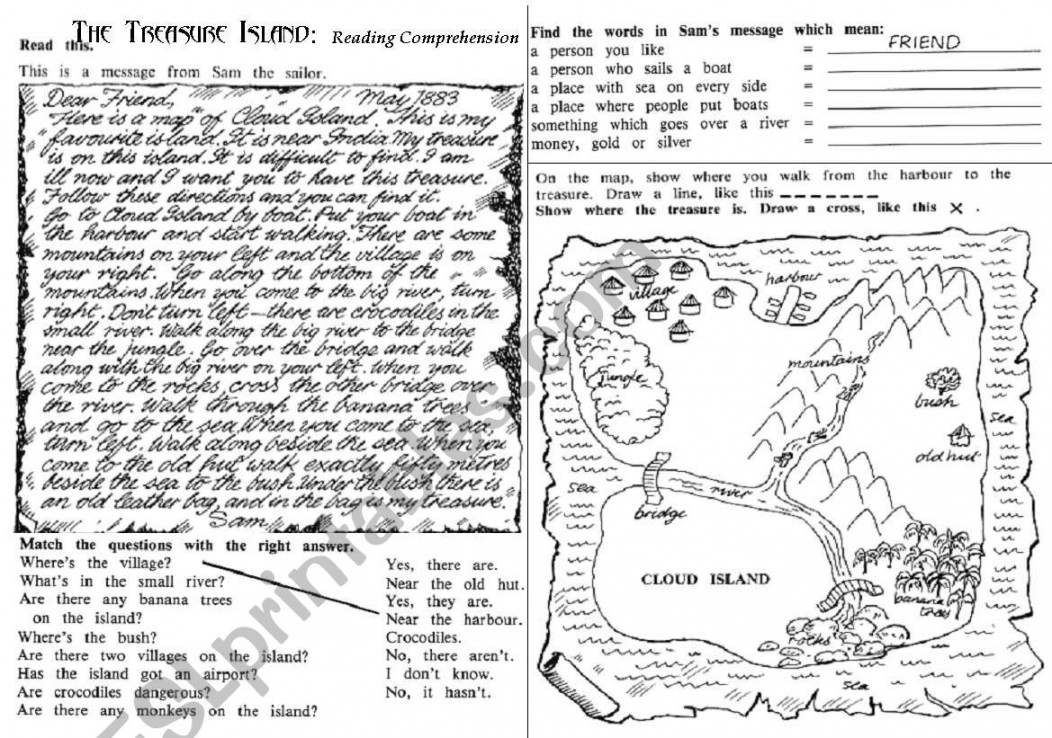 THE TREASURE ISLAND: Reading Comprehension
Read this.
This is a message from Sam the sailor.
Dear Friend, May 1883
Here is a map of Cloud Island. This is my
favourite island. It is near India. My treasure
is on this island. It is difficult to find. I am
ill now and I want you to have this treasure.
Follow these directions and you can find it.
Go to Cloud Island by boat. Put your boat in
the harbour and start walking. There are some
mountains on your left and the village is on
your right. Go along the bottom of the
mountains. When you come to the big river, turn
right. Don't turn left – there are crocodiles in the
small river. Walk along the big river to the bridge
near the jungle. Go over the bridge and walk
along with the big river on your left. When you
come to the rocks, cross the other bridge over
the river. Walk through the banana trees
and go to the sea. When you come to the sea
turn left. Walk along beside the sea. When you
come to the old hut walk exactly fifty metres
beside the sea to the bush. Under the bush there is
an old leather bag, and in the bag is my treasure.
Sam
Match the questions with the right answer.
Where's the village? Yes, there are.
What's in the small river? Near the old hut.
Are there any banana trees Yes, they are.
on the island? Near the harbour.
Where's the bush? Crocodiles.
Are there two villages on the island? No, there aren't.
Has the island got an airport? I don't know.
Are crocodiles dangerous? No, it hasn't.
Are there any monkeys on the island?
Find the words in Sam's message which mean:
a person you like = FRIEND
a person who sails a boat =
a place with sea on every side =
a place where people put boats =
something which goes over a river =
money, gold or silver =
On the map, show where you walk from the harbour to the
treasure. Draw a line, like this
Show where the treasure is. Draw a cross, like this X .
village
harbour
mountains
jungle
bush
sea
old hut
sea
river
bridge
CLOUD ISLAND
banana
trees
rocks
sea
ESLprintables.com